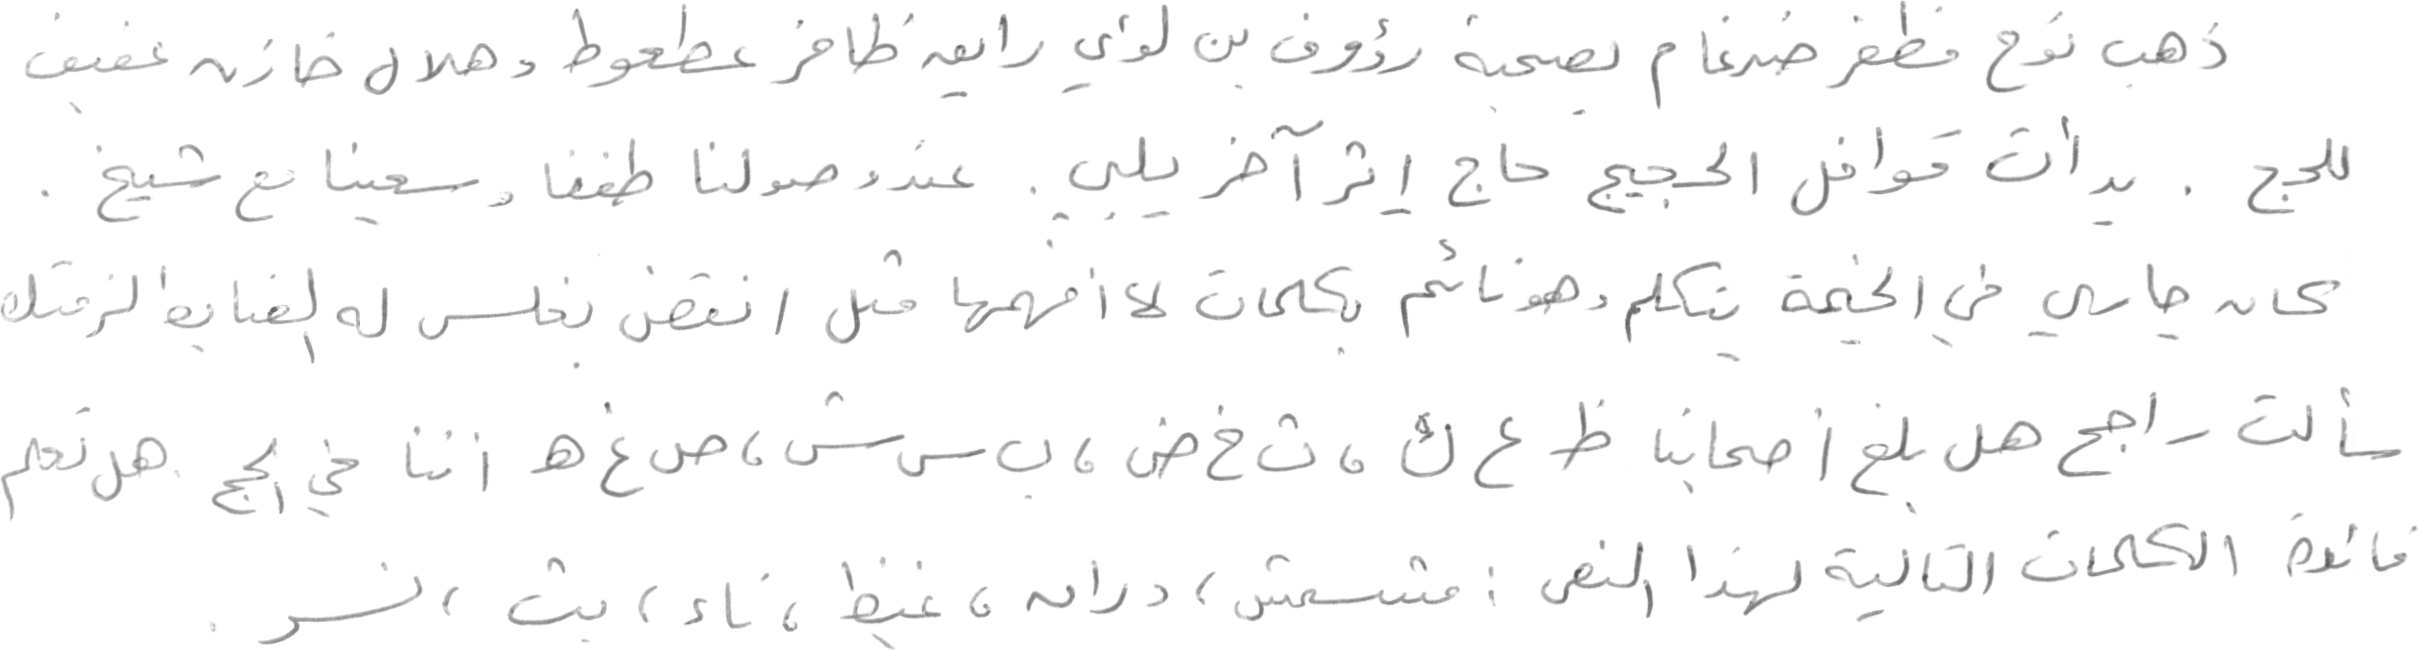 ذهب نوح مظفر ضرغام بصحبة رؤوف بن لؤي رايق ظافر عطعوط وهلال خازن عفيف
للحج . بدأت قوافل الحجيج حاج إثر آخر يلبي . عند وصولنا طفنا وسعينا مع شيخ .
كان جاري في الخيمة يتكلم وهو نائم بكلمات لا أفهمها مثل انقض بغلس له إلضنابط لزمتك
سألت راجح هل بلغ أصحابنا ظ ع ك ، ث خ ض ، ب س ش ، ص غ ه أننا في الحج . هل تعلم
فائدة الكلمات التالية لهذا النص : مشمش ، دران ، غيظ ، ناء ، بث ، نسر .